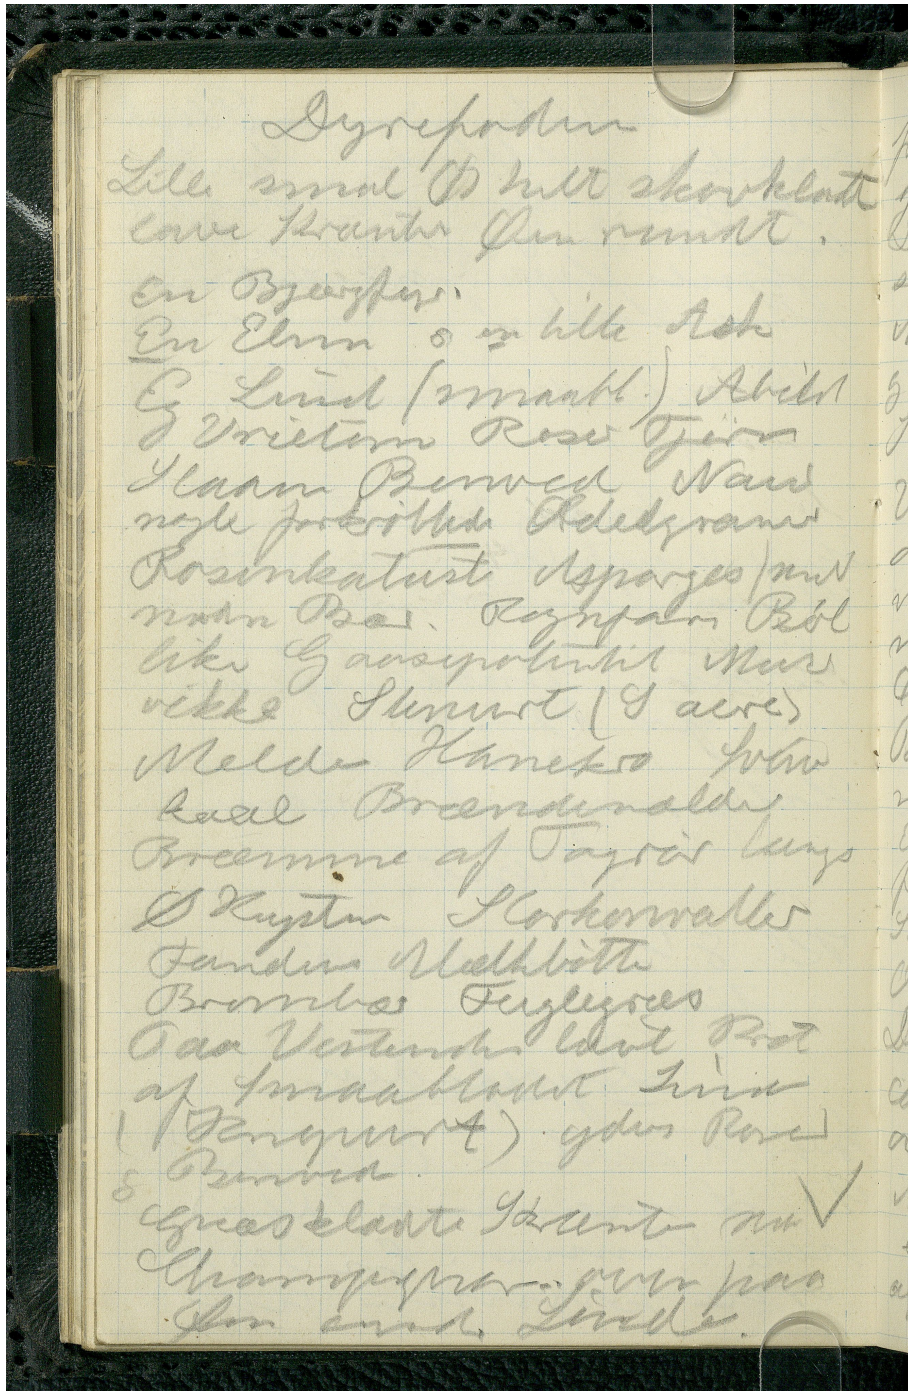 Dyrefoden
Lille smal Ø helt skovklædt
lave Skrænter Øen rundt.
En Bjergfyr.
En Elm & en lille Ask
Eg Lind (smaabl.) Abild
Vrietorn Roser Tjørn
Slaaen Benved Navr
nogle forkrøblede Ædelgraner
Rosenkattost Asparges (med
Bær. Regnfan Røl
like Gaasepotentil Muse
vikke Stenurt (S acre)
Melde Hanekro Svine
kaal Brændenælder
Bræmme af Tagrør langs
S Kysten Skorkonvaller
Mælkbøtte
Brombær Fuglegræs
Paa Vestenden lavt Krat
af smaabladet Lind
(Knopurt) ydre Roser
& Benved
Græsklædte Skrænter
Champignon. oven paa
Øen Linde.